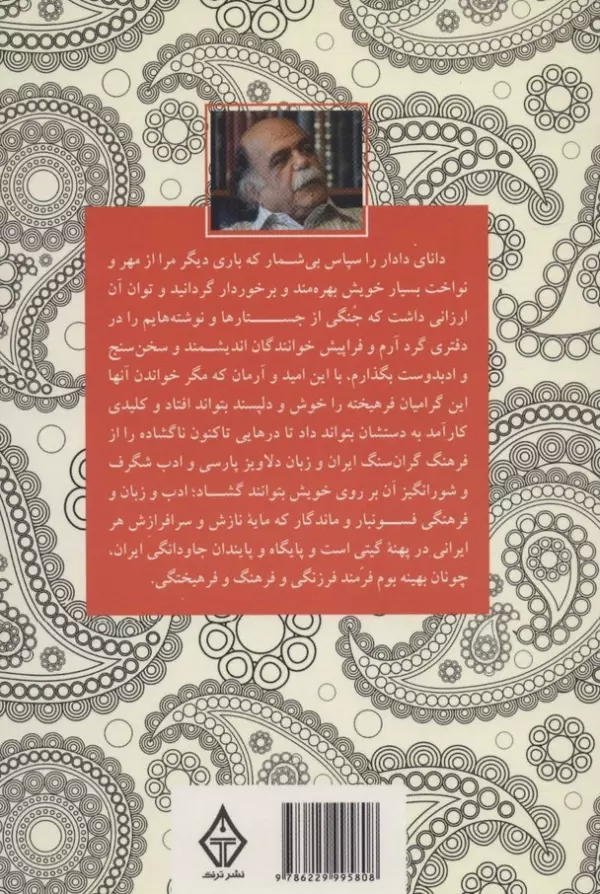 دانایَ دادار را سپاس بی‌شمار که باری دیگر مرا از مهر و
نواخت بسیار خویش بهره‌مند و برخوردار گردانید و توان آن
ارزانی داشت که جُنگی از جستارها و نوشته‌هایم را در
دفتری گرد آرم و فراپیش خوانندگان اندیشمند و سخن‌سنج
و ادبدوست بگذارم. با این امید و آرمان که مگر خواندن آنها
این گرامیان فرهیخته را خوش و دلپسند بتواند افتاد و کلیدی
کارآمد به دستشان بتواند داد تا درهایی تاکنون ناگشاده را از
فرهنگ گران‌سنگ ایران و زبان دلاویز پارسی و ادب شگرف
و شورانگیز آن بر روی خویش بتوانند گشاد؛ ادب و زبان و
فرهنگی فسونبار و ماندگار که مایهٔ نازش و سرافرازش هر
ایرانی در پهنهٔ گیتی است و پایگاه و پایندان جاودانگیَ ایران،
چونان بهینه بوم فرّمند فرزنگی و فرهنگ و فرهیختگی.
نشر ترنگ
9 786229 995808